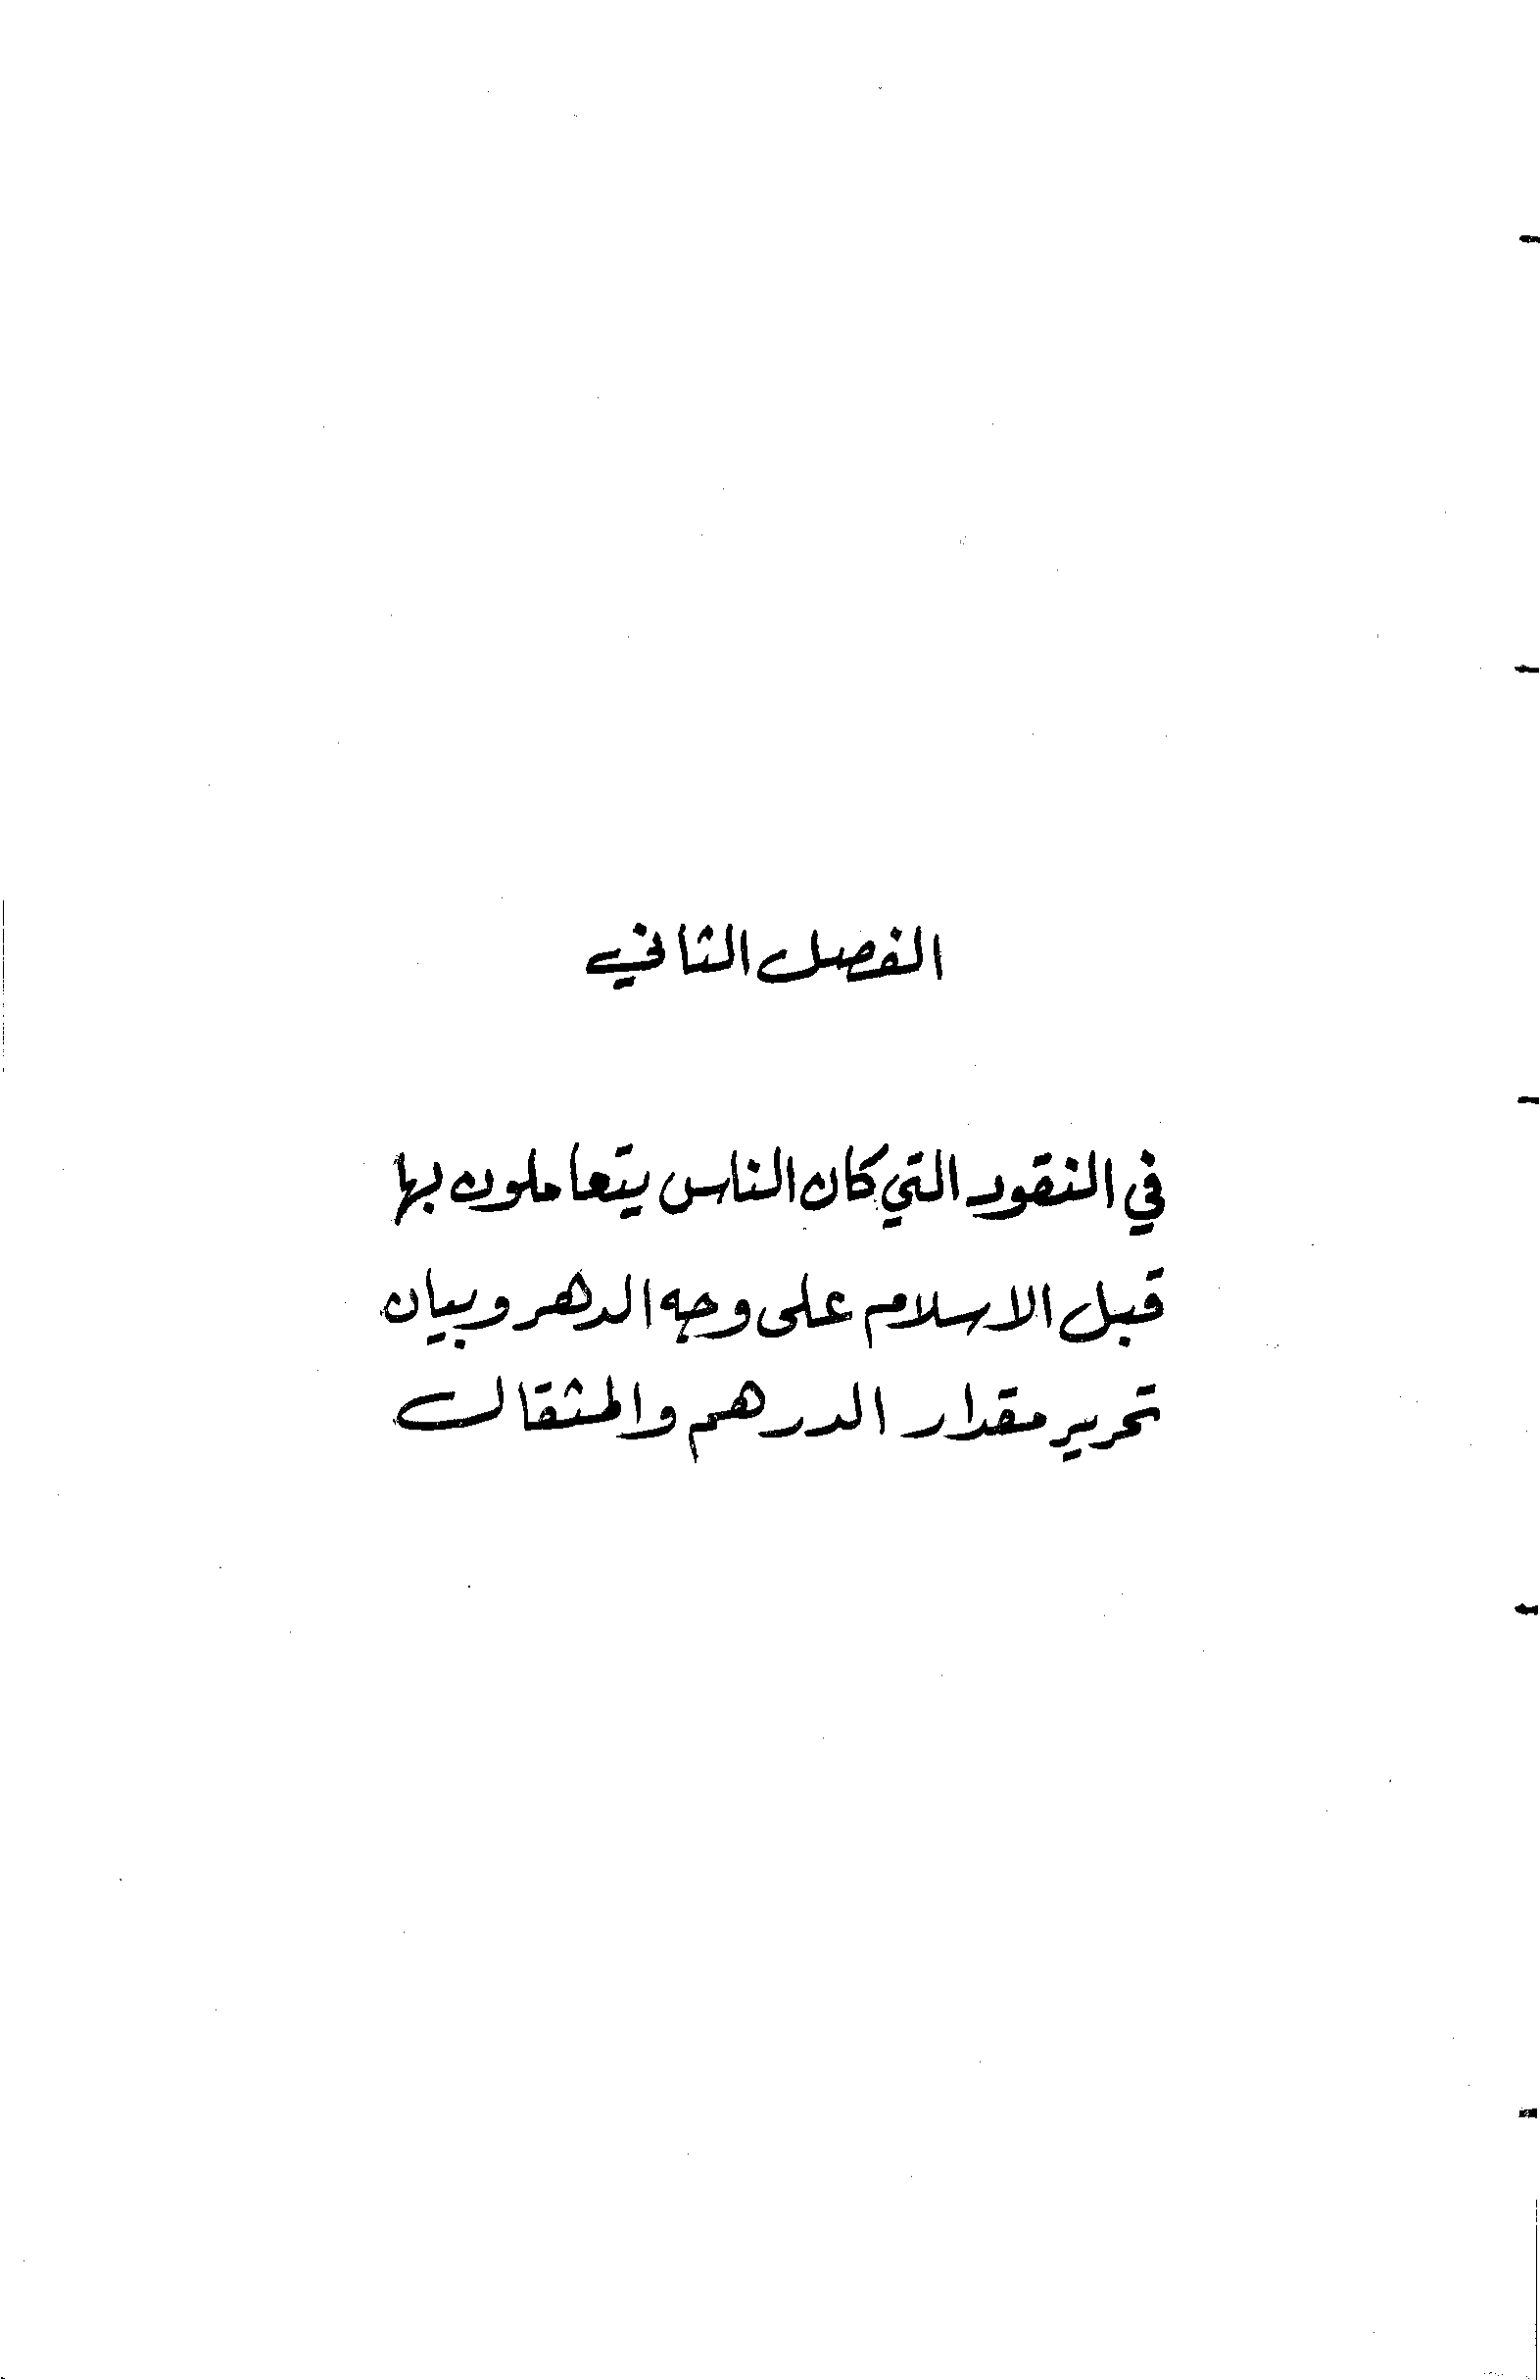 الفصل الثاني
في النقود التي كان الناس يتعاملون بها
قبل الاسلام على وجه الدهر وبيان
تحرير مقدار الدرهم والمثقال